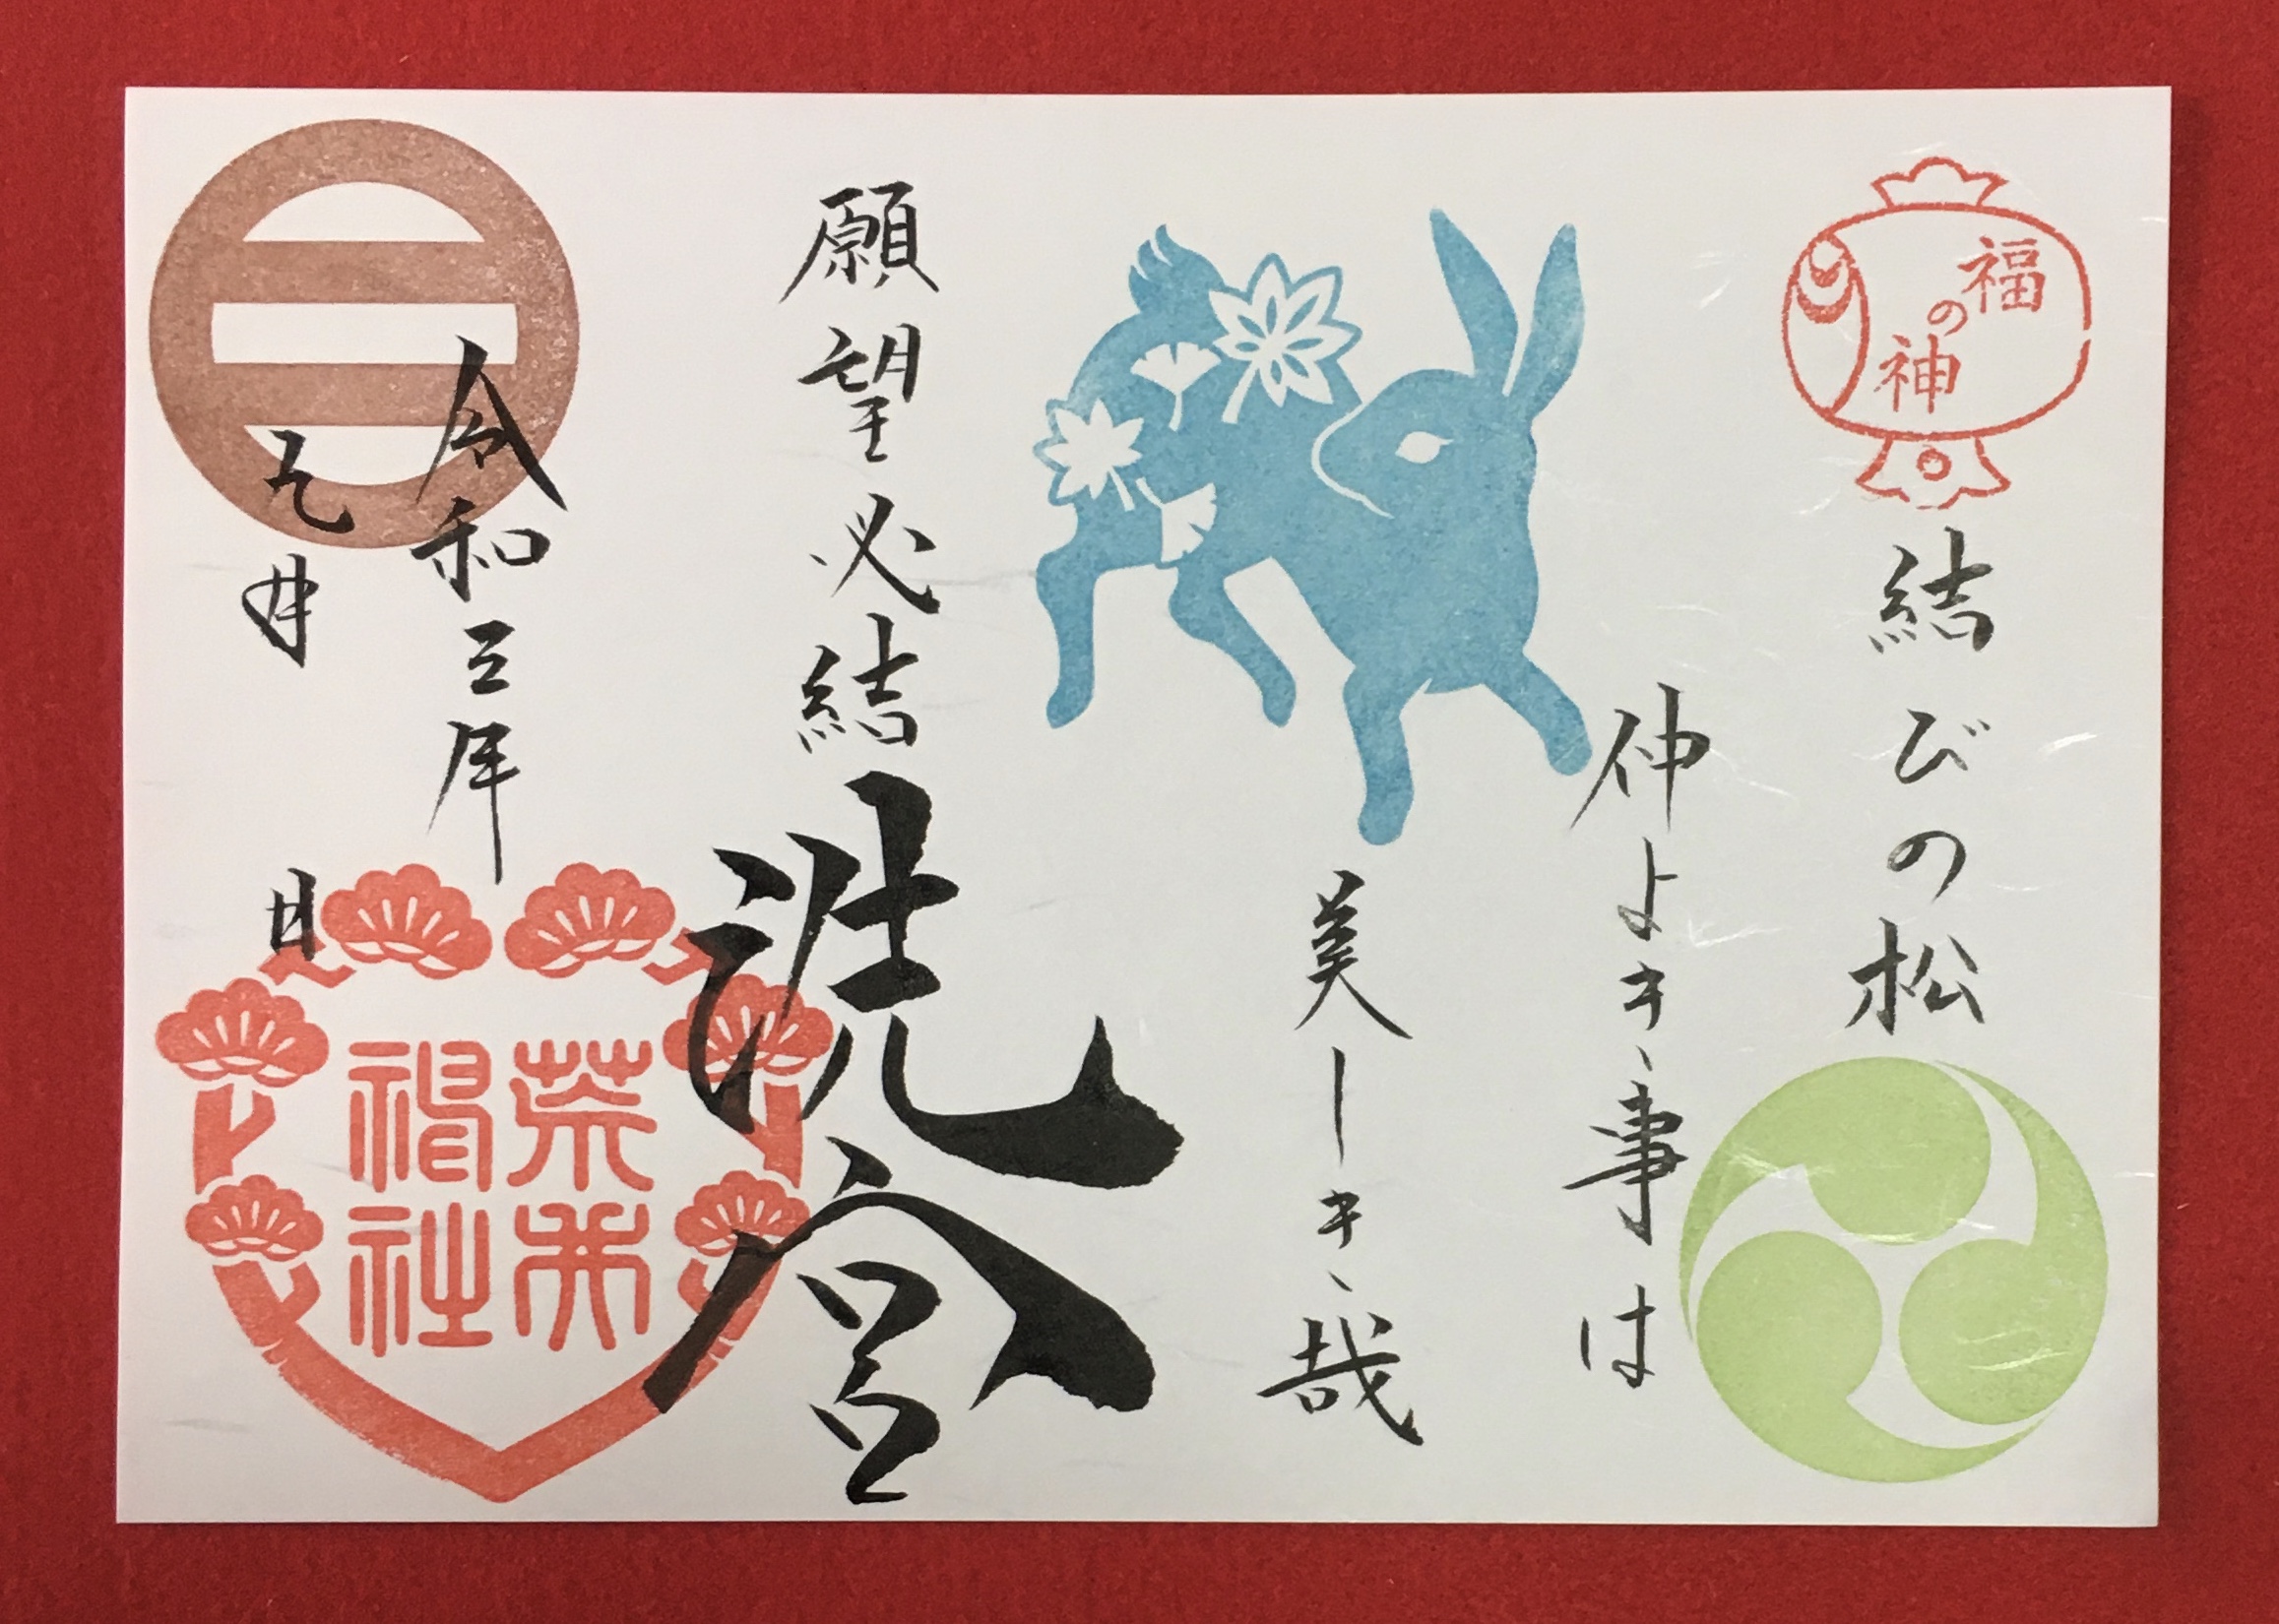 福の神
結びの松
仲よき事は
美しき哉
願望必結
洗宮
令和三年
月 日
荒井
神社